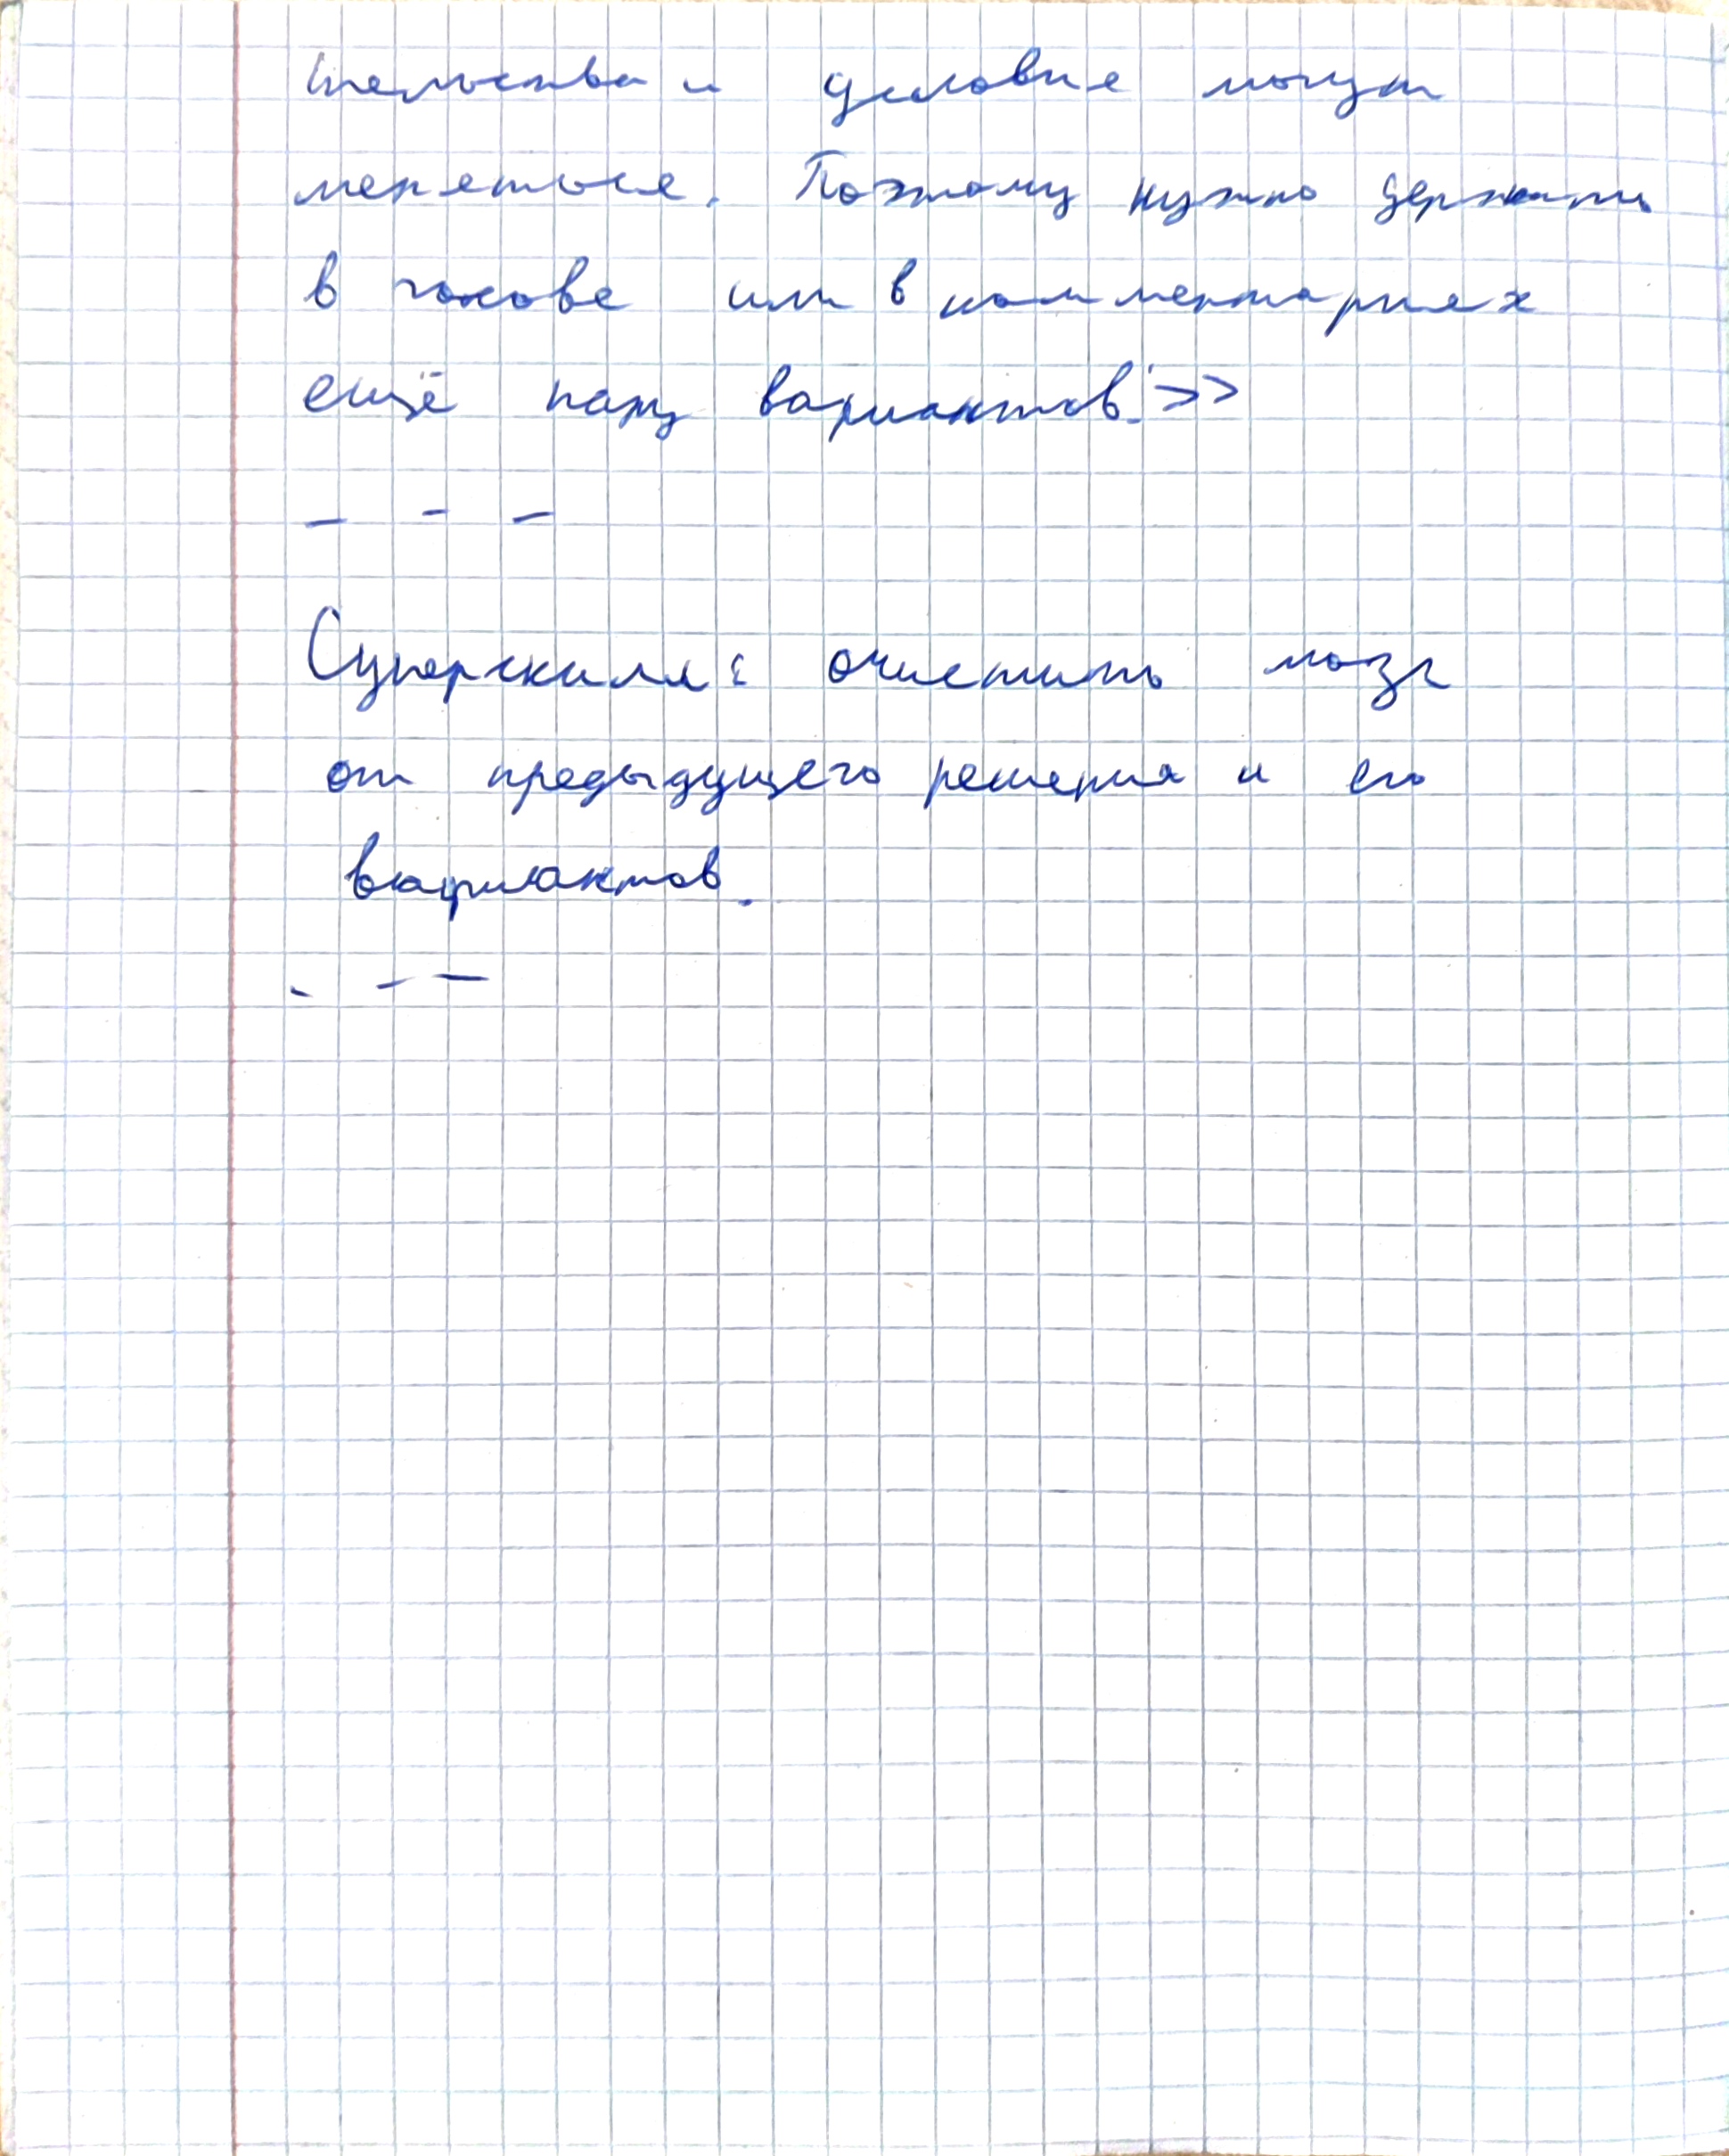 тельства и условия могут
меняться. Поэтому нужно держать
в голове или в комментариях
ещё пару вариантов.>>
- - -
Суперскилл: очистить мозг
от предыдущего решения и его
вариантов.
- - -